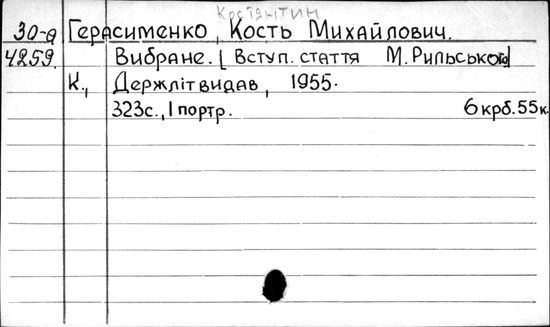 Костянтин
30-а Герасименко, Кость Михайлович.
4259. Вибране. [Вступ. стаття М. Рильського]
К., Держлітвидав, 1955.
323с., 1 портр. 6 крб. 55к